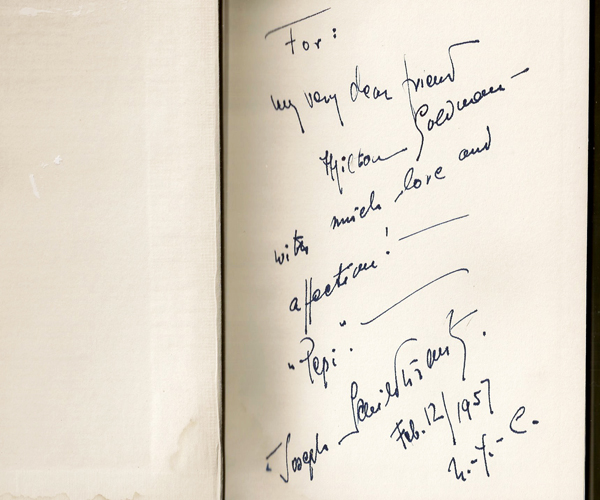 For:
my very dear friend
Milton Goldman—
with much love and
affection! —
"Pepi". —
Joseph Schildkraut.
Feb. 12/1957
N.-Y.- C.